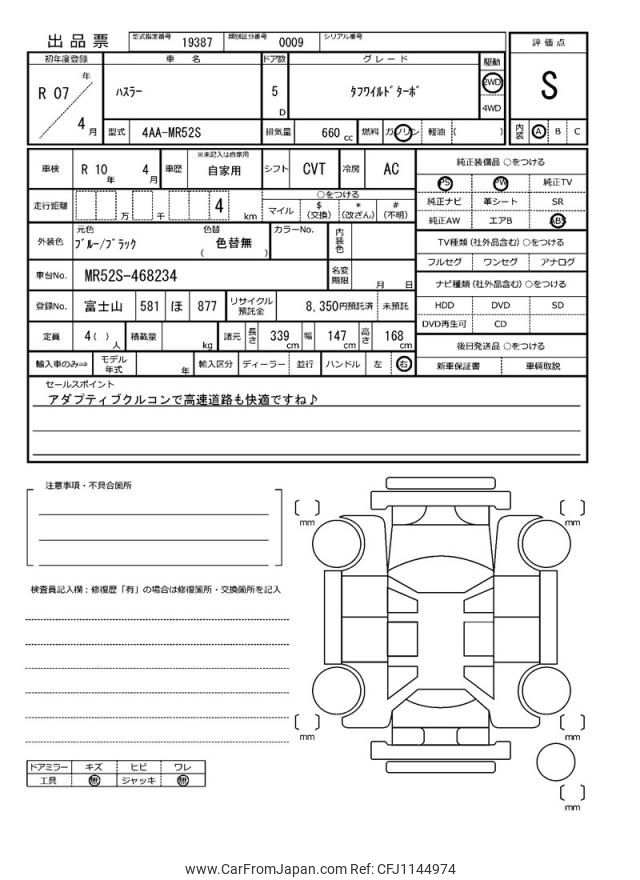 出品票 型式指定番号 19387 類別区分番号 0009 シリアル番号
初年度登録 車名 ドア数 グレード 駆動 評価点
R 07 年 4 月 ハスラー 5 D タフワイルドターボ 2WD 4WD S
型式 4AA-MR52S 排気量 660 cc 燃料 ガソリン 軽油 ( ) 内装 A B C
車検 R 10 年 4 月 車歴 ※未記入は自家用 自家用 シフト CVT 冷房 AC
純正装備品 ○をつける
PS PW 純正TV
純正ナビ 革シート SR
純正AW エアB ABS
走行距離 万 千 4 km ○をつける
マイル $ (交換) * (改ざん) # (不明)
外装色 元色 ブルー/ブラック 色替 ( 色替無 ) カラーNo. 内装色
TV種類 (社外品含む) ○をつける
フルセグ ワンセグ アナログ
車台No. MR52S-468234 名変期限 月 日
ナビ種類 (社外品含む) ○をつける
HDD DVD SD
DVD再生可 CD
登録No. 富士山 581 ほ 877 リサイクル預託金 8,350円預託済 未預託
定員 4( ) 人 積載量 kg 諸元 長さ 339 cm 幅 147 cm 高さ 168 cm
後日発送品 ○をつける
新車保証書 車輌取説
輸入車のみ⇒ モデル年式 年 輸入区分 ディーラー 並行 ハンドル 左 右
セールスポイント
アダプティブクルコンで高速道路も快適ですね♪
注意事項・不具合箇所
検査員記入欄：修復歴「有」の場合は修復箇所・交換箇所を記入
mm
mm
mm
mm
mm
ドアミラー キズ ヒビ ワレ
工具 無 ジャッキ 無
www.CarFromJapan.com Ref: CFJ1144974